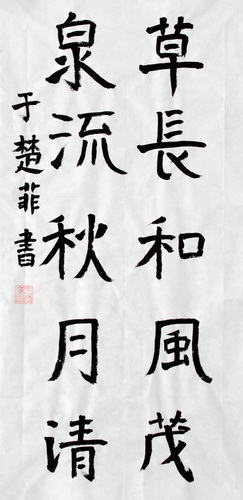 草長和風茂
泉流秋月清
于楚菲書